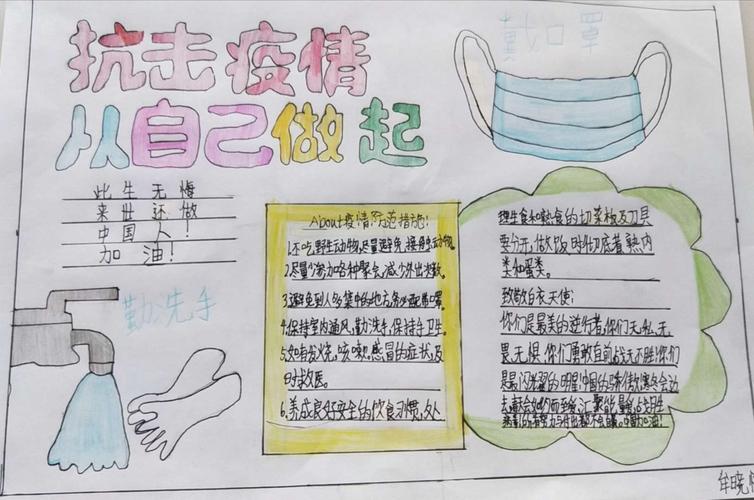 抗击疫情
从自己做起
戴口罩
此生无悔
来世还做
中国人!
加油!
勤洗手
About疫情防范措施:
1.不吃野生动物,尽量避免接触动物。
2.尽量少参加各种聚会,减少外出次数。
3.避免到人多集中的地方务必戴口罩。
4.保持室内通风,勤洗手,保持卫生。
5.如有发烧,咳嗽,感冒的症状,及
时求医。
6.养成良好安全的饮食习惯,处
理生食和熟食的切菜板及刀具
要分开,做饭时彻底煮熟肉
类和蛋类。
致敬白衣天使:
你们是最美的逆行者,你们无私,无
畏无惧,你们勇敢直前,战无不胜!你们
是最闪耀的明星!中国的骄傲!寒冬会过
去
中国加油!
牟晓